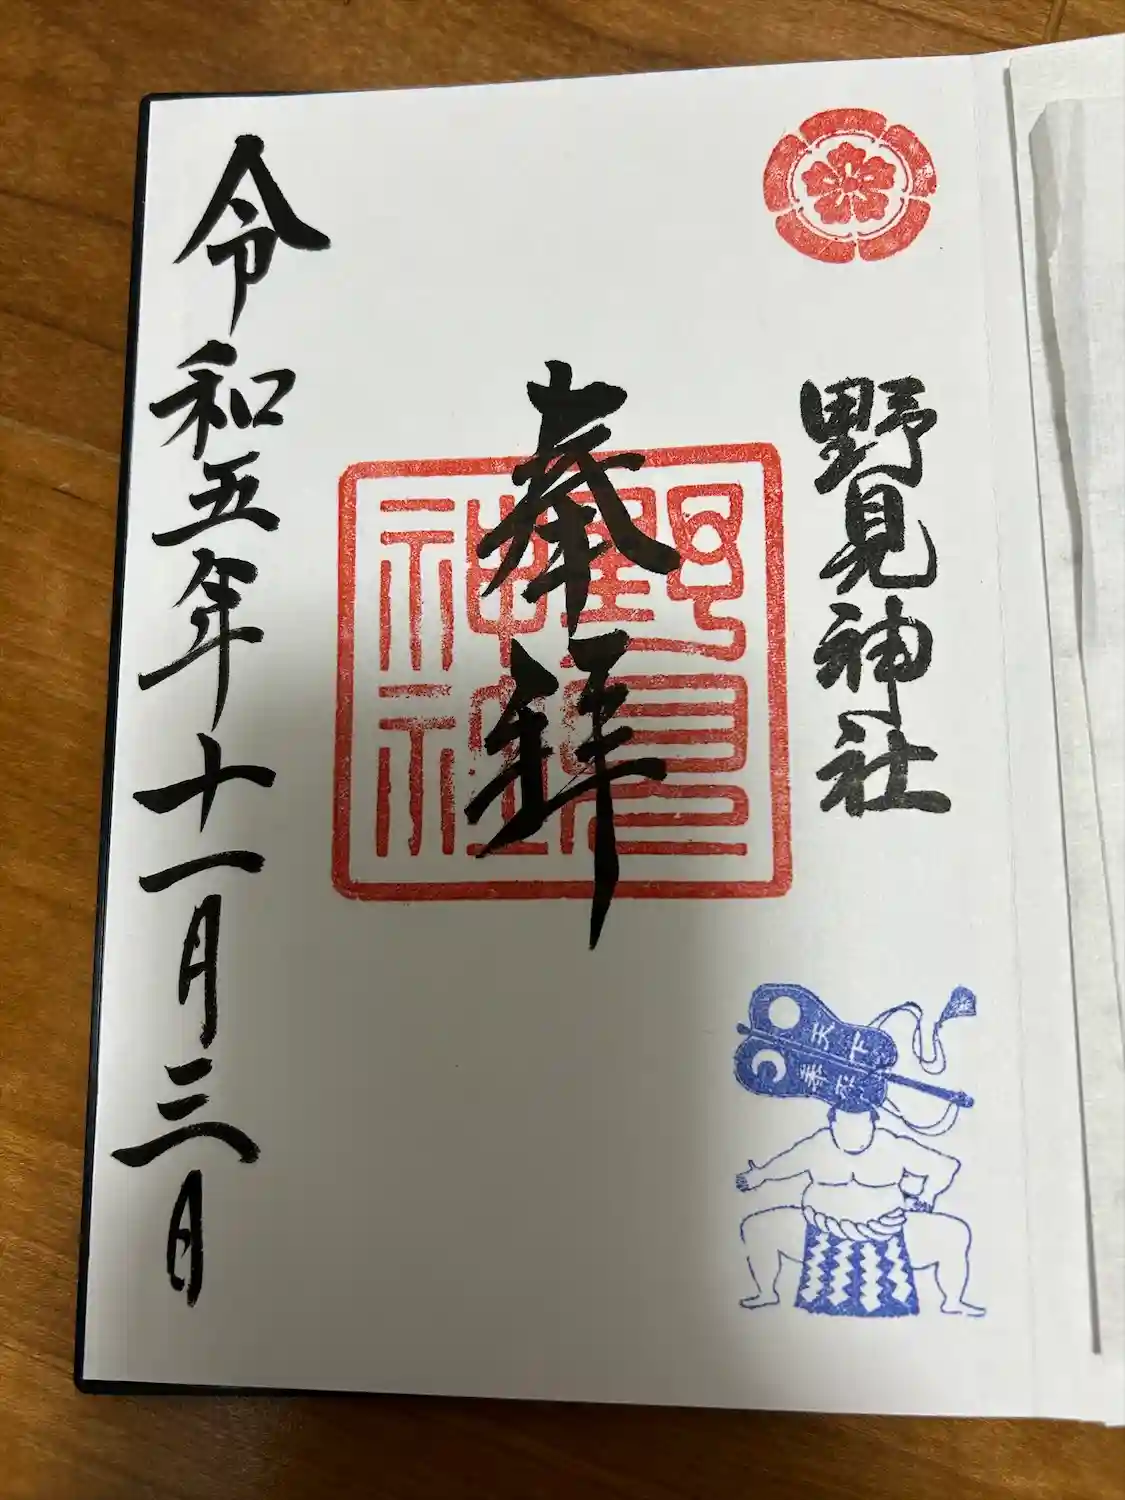 野見神社
奉拝
野見
神社
令和五年十一月三日
天下
泰平